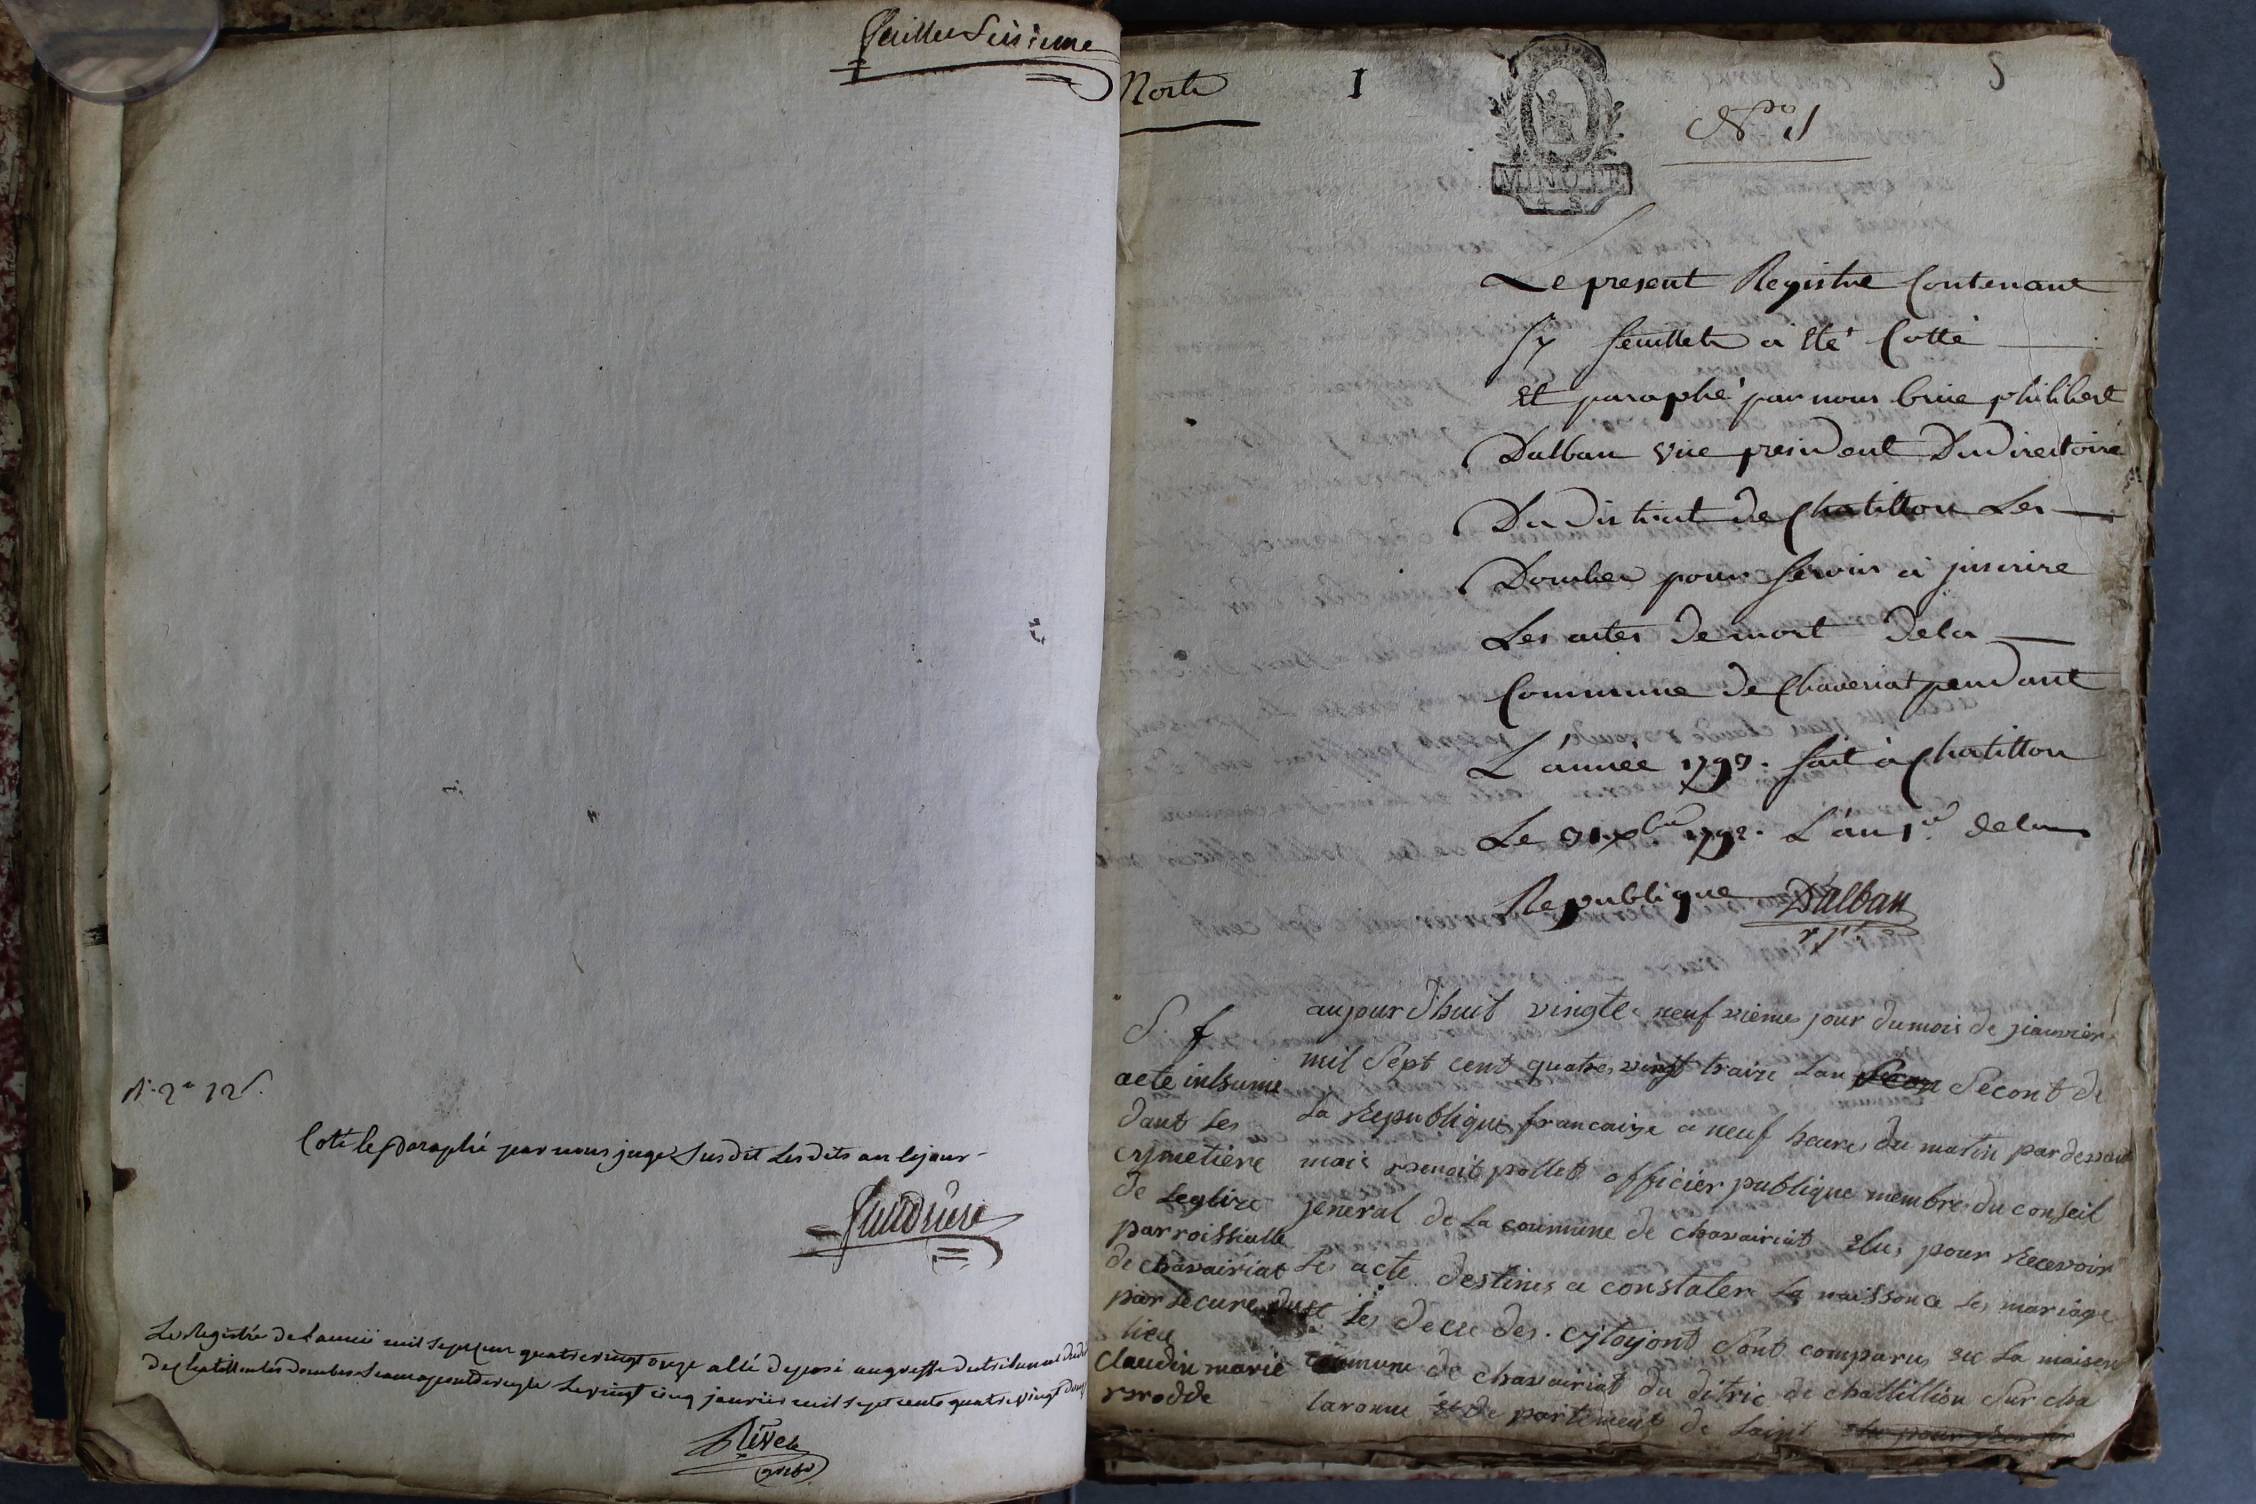 feuillet sisieme
N. 2e 12
Coté le paraphé par nous juge susdit les dits an le jour
Le Registre de l'année mil sept cent quatre vingt onze a été déposé au greffe du tribunal du
de Chatillon les Dombes le vingt cinq janvier mil sept cent quatre vingt douze
Morts
I
5
No. 1
MINUTE
4 S.
Le present Registre Contenant
feuillets a Eté Cotté
Et paraphé par nous philibert
Dalban vice president Du Directoire
Du District de Chatillon Les
Dombes pour servir a jnscrire
Les actes de mort de la
Commune de Chaveriat pendant
L'année 1793. fait à Chatillon
Le 31 xbre 1792. L'an 1er de la
Republique Dalban
S. f
acte inhume
dant les
cymetière
de leglize
parroissialle
de chavairiat
par le cure dudt
lieu
Claudin marie
brodde
aujour d'huit vingte neuf vieme jour du mois de jianvier
mil sept cent quatre vingt traize lan secont de
la Republique francaize a neuf heures du matin par devant
moi benoit pollet officier publique membre du conseil
jeneral de la coumune de chavairiat elu, pour recevoir
les acte destines a constater la naissance les mariage
et les deces des citoyont sont comparus en la maison
commune de chavairiat du ditric de chattillion sur cha
laronne et de partement de laint